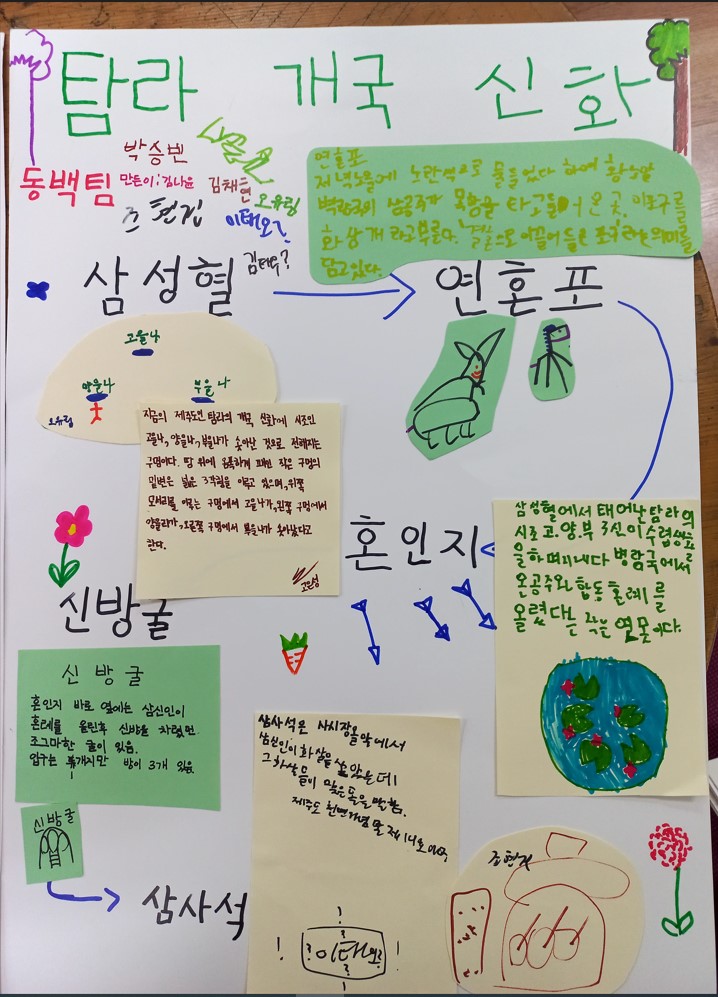 탐라 개국 신화
동백팀
박승빈
만든이:김나윤
김채연
오유림
조현진
이태오
김태우?
연혼포
저녁노을에 노란색으로 물들었다 하여 황노알
벽랑국의 삼공주가 목함을 타고 들어온 곳. 이포구를
화상개 라고 부른다.
으로 이끌어 들인 포구라는 의미를
담고있다.
삼성혈
연혼포
고을나
양을나
부을나
오유림
지금의 제주도인 탐라의 개국 신화에 시조인
고을나, 양을나, 부을나가 솟아난 것으로 전해지는
구멍이다. 땅 위에 움푹하게 패인 작은 구멍의
밑변은 넓은 3각형을 이루고 있으며, 위쪽
모서리를 이루는 구멍에서 고을나가, 왼쪽 구멍에서
양을라가, 오른쪽 구멍에서 부을나가 솟아났다고
한다.
혼인지
삼성혈에서 태어난 탐라의
시조 고.양.부 3신이 수렵생활
을하며지내다 벽랑국에서
온공주와 합동 혼례를
올렸다는 작은 연못이다.
신방굴
신방굴
혼인지 바로 옆에는 삼신인이
혼례를 올린후 신방을 차렸던
조그마한 굴이 있음.
입구는 한개지만 방이 3개 있음
신방굴
삼사석
삼사석은 사시장올악에서
삼신인이 화살을 쏘았는데
그 화살들이 맞은돌을말함.
제주도
조현진
! ?이태오? !